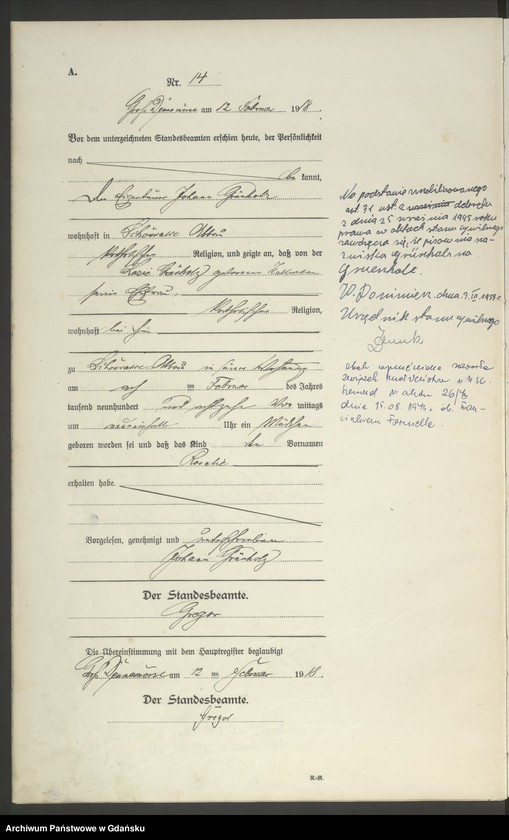 A.
Nr. 14
am 12 Februar 1918.
Vor dem unterzeichneten Standesbeamten erschien heute, der Persönlichkeit
nach
be kannt,
Der Eigentümer Johann Grünholz
wohnhaft in Schönwalde Abbau
katholischer Religion, und zeigte an, daß von der
geborenen
seine Ehefrau,
katholischer Religion,
wohnhaft bei ihm
zu Schönwalde Abbau in seiner Wohnung
am acht en Februar des Jahres
tausend neunhundert und achtzehn Vor mittags
um neuneinhalb Uhr ein Mädchen
geboren worden sei und daß das Kind den Vornamen
Rosalie
erhalten habe.
Vorgelesen, genehmigt und unterschrieben
Johann Grünholz
Der Standesbeamte.
Gregor
Die Übereinstimmung mit dem Hauptregister beglaubigt
am 12 ten Februar 1918.
Der Standesbeamte.
Gregor
Na podstawie
art. 71 ust. 2 dekretu
z dnia 25 września 1945 roku
prawa o aktach stanu cywilnego
się, że pisownia na-
zwiska na
Gruenholc.
dnia 9. IX 1959 r.
Urzędnik stanu cywilnego
obok wymieniona zawarła
związek małżeński w USC
nr aktu 26/46
dnia 15.08 1946 ob. Fran-
ciszkiem
R.-R.
Archiwum Państwowe w Gdańsku